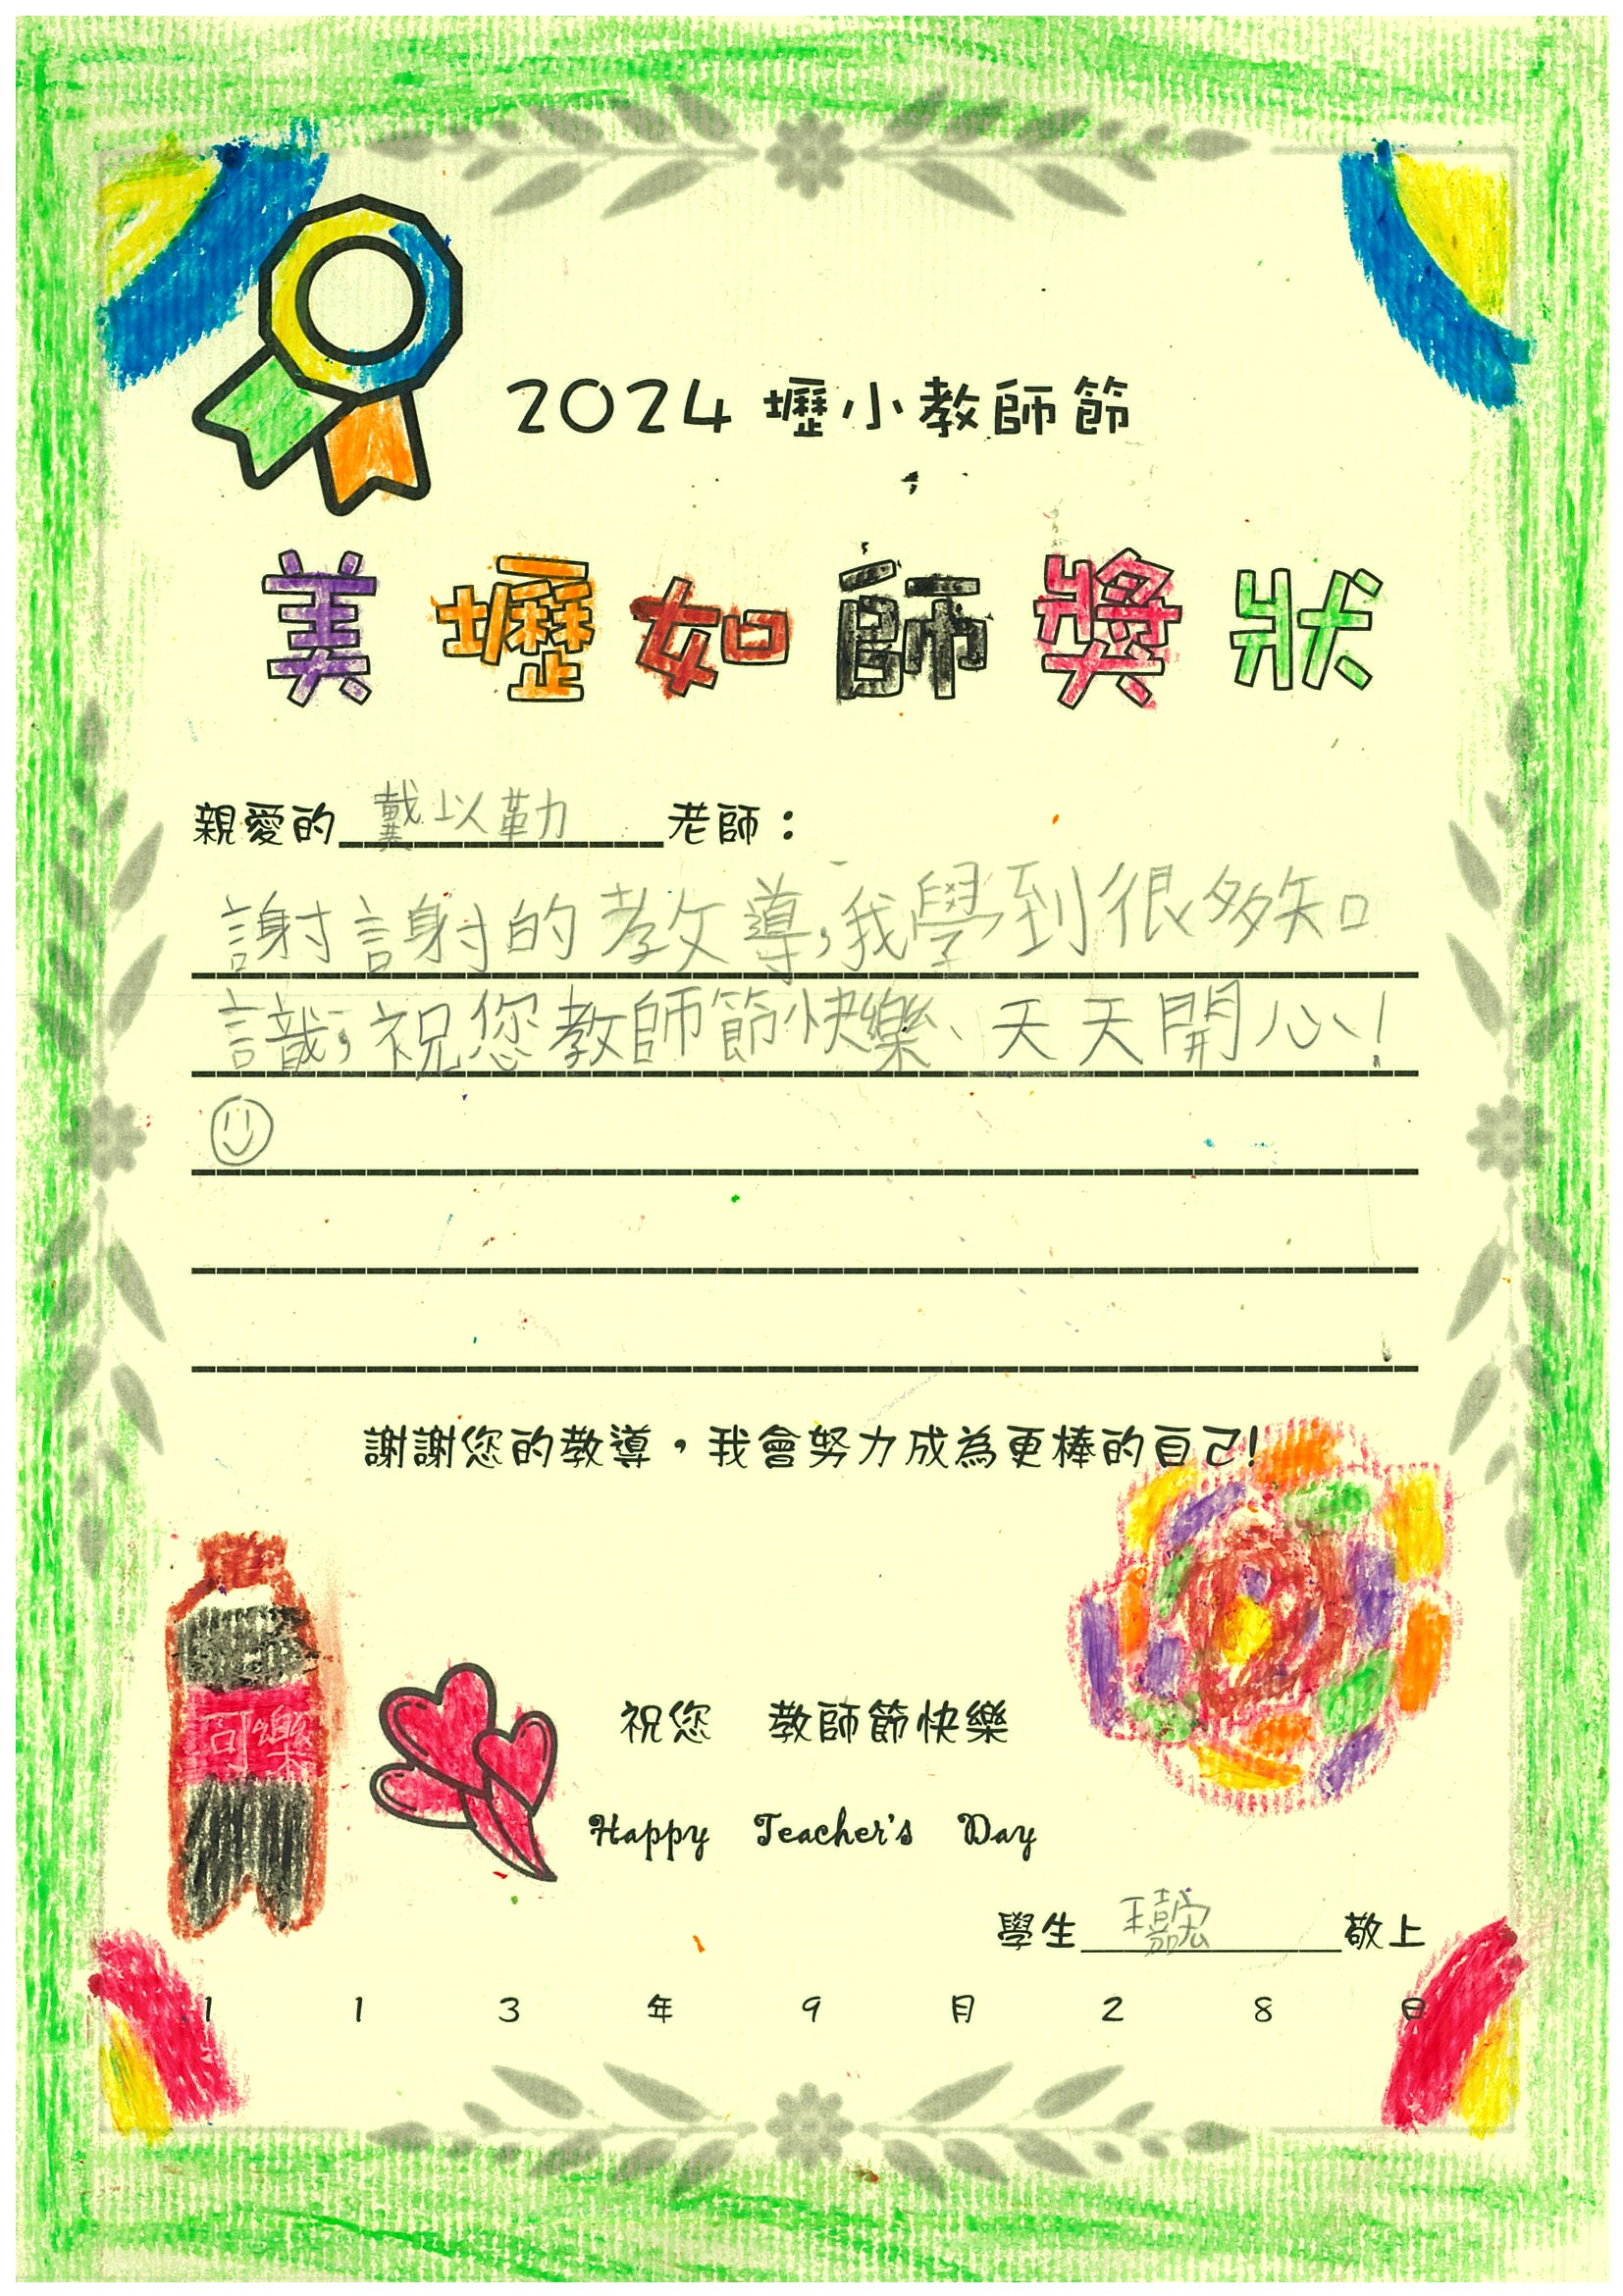 2024 壢小教師節
美壢如師獎狀
親愛的戴以勒老師：
謝謝的教導，我學到很多知
識，祝您教師節快樂、天天開心！
謝謝您的教導，我會努力成為更棒的自己！
可樂
祝您 教師節快樂
Happy Teacher's Day
學生王嘉宏敬上
113年9月28日